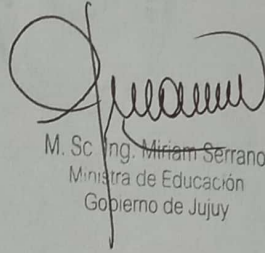 M. Sc Ing. Miriam Serrano
Ministra de Educación
Gobierno de Jujuy